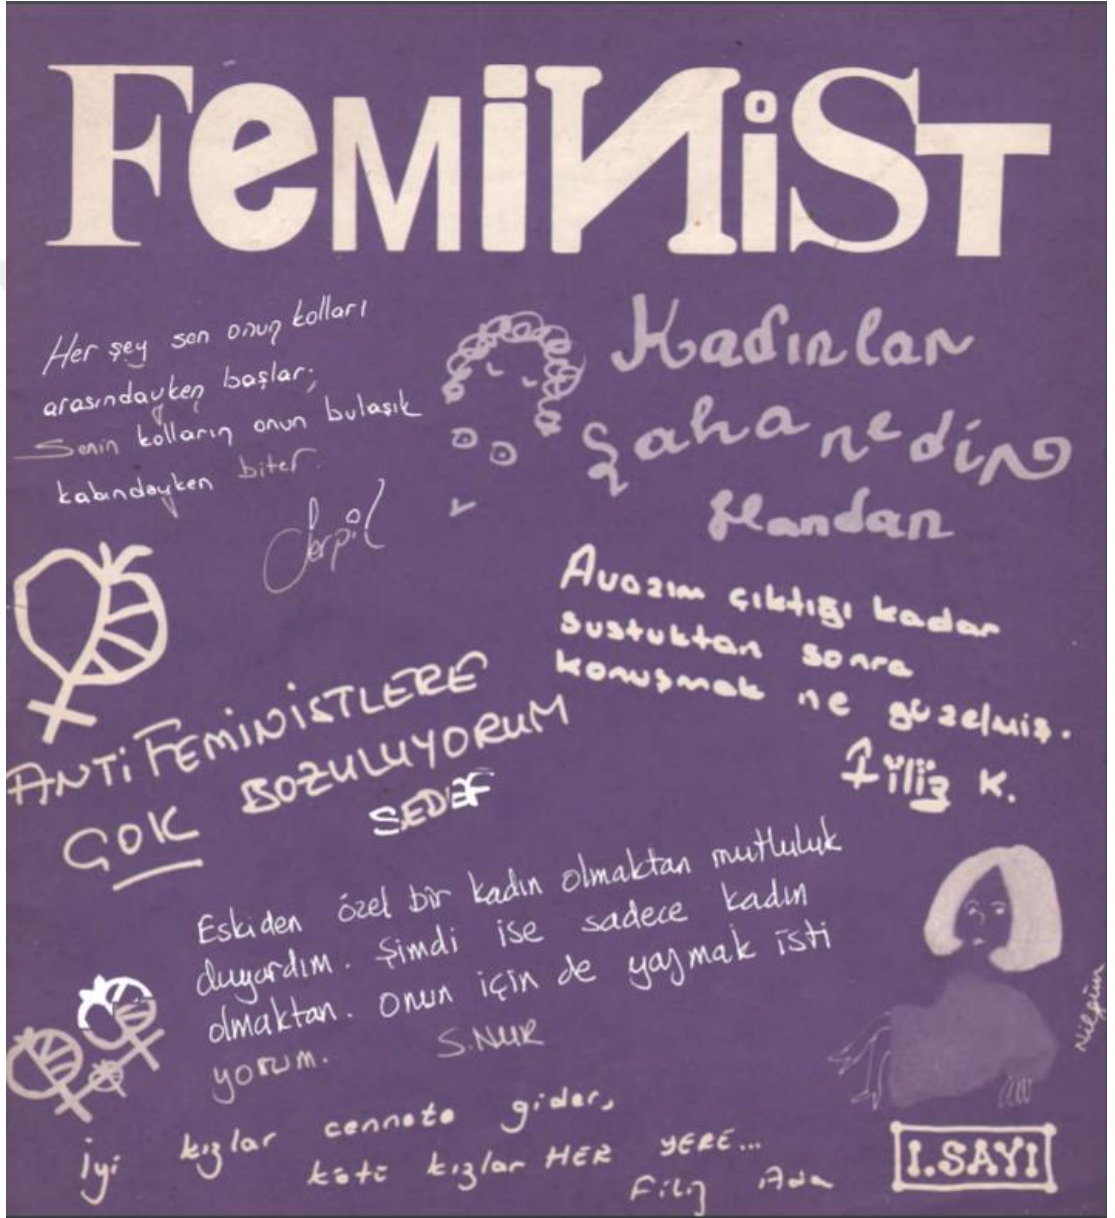 FEMİNİST
Her şey sen onun kolları
arasındayken başlar;
Senin kolların onun bulaşık
kabındayken biter.
Serpil
Kadınlar
Şahanedir
Handan
Avazım çıktığı kadar
sustuktan sonra
konuşmak ne güzelmiş.
Filiz K.
ANTİ FEMİNİSTLERE
ÇOK BOZULUYORUM
SEDEF
Eskiden özel bir kadın olmaktan mutluluk
duyardım. Şimdi ise sadece kadın
olmaktan. Onun için de yazmak isti
yorum. S.NUR
Nilgün
İyi kızlar cennete gider,
kötü kızlar HER YERE...
Filiz Ada
1.SAYI